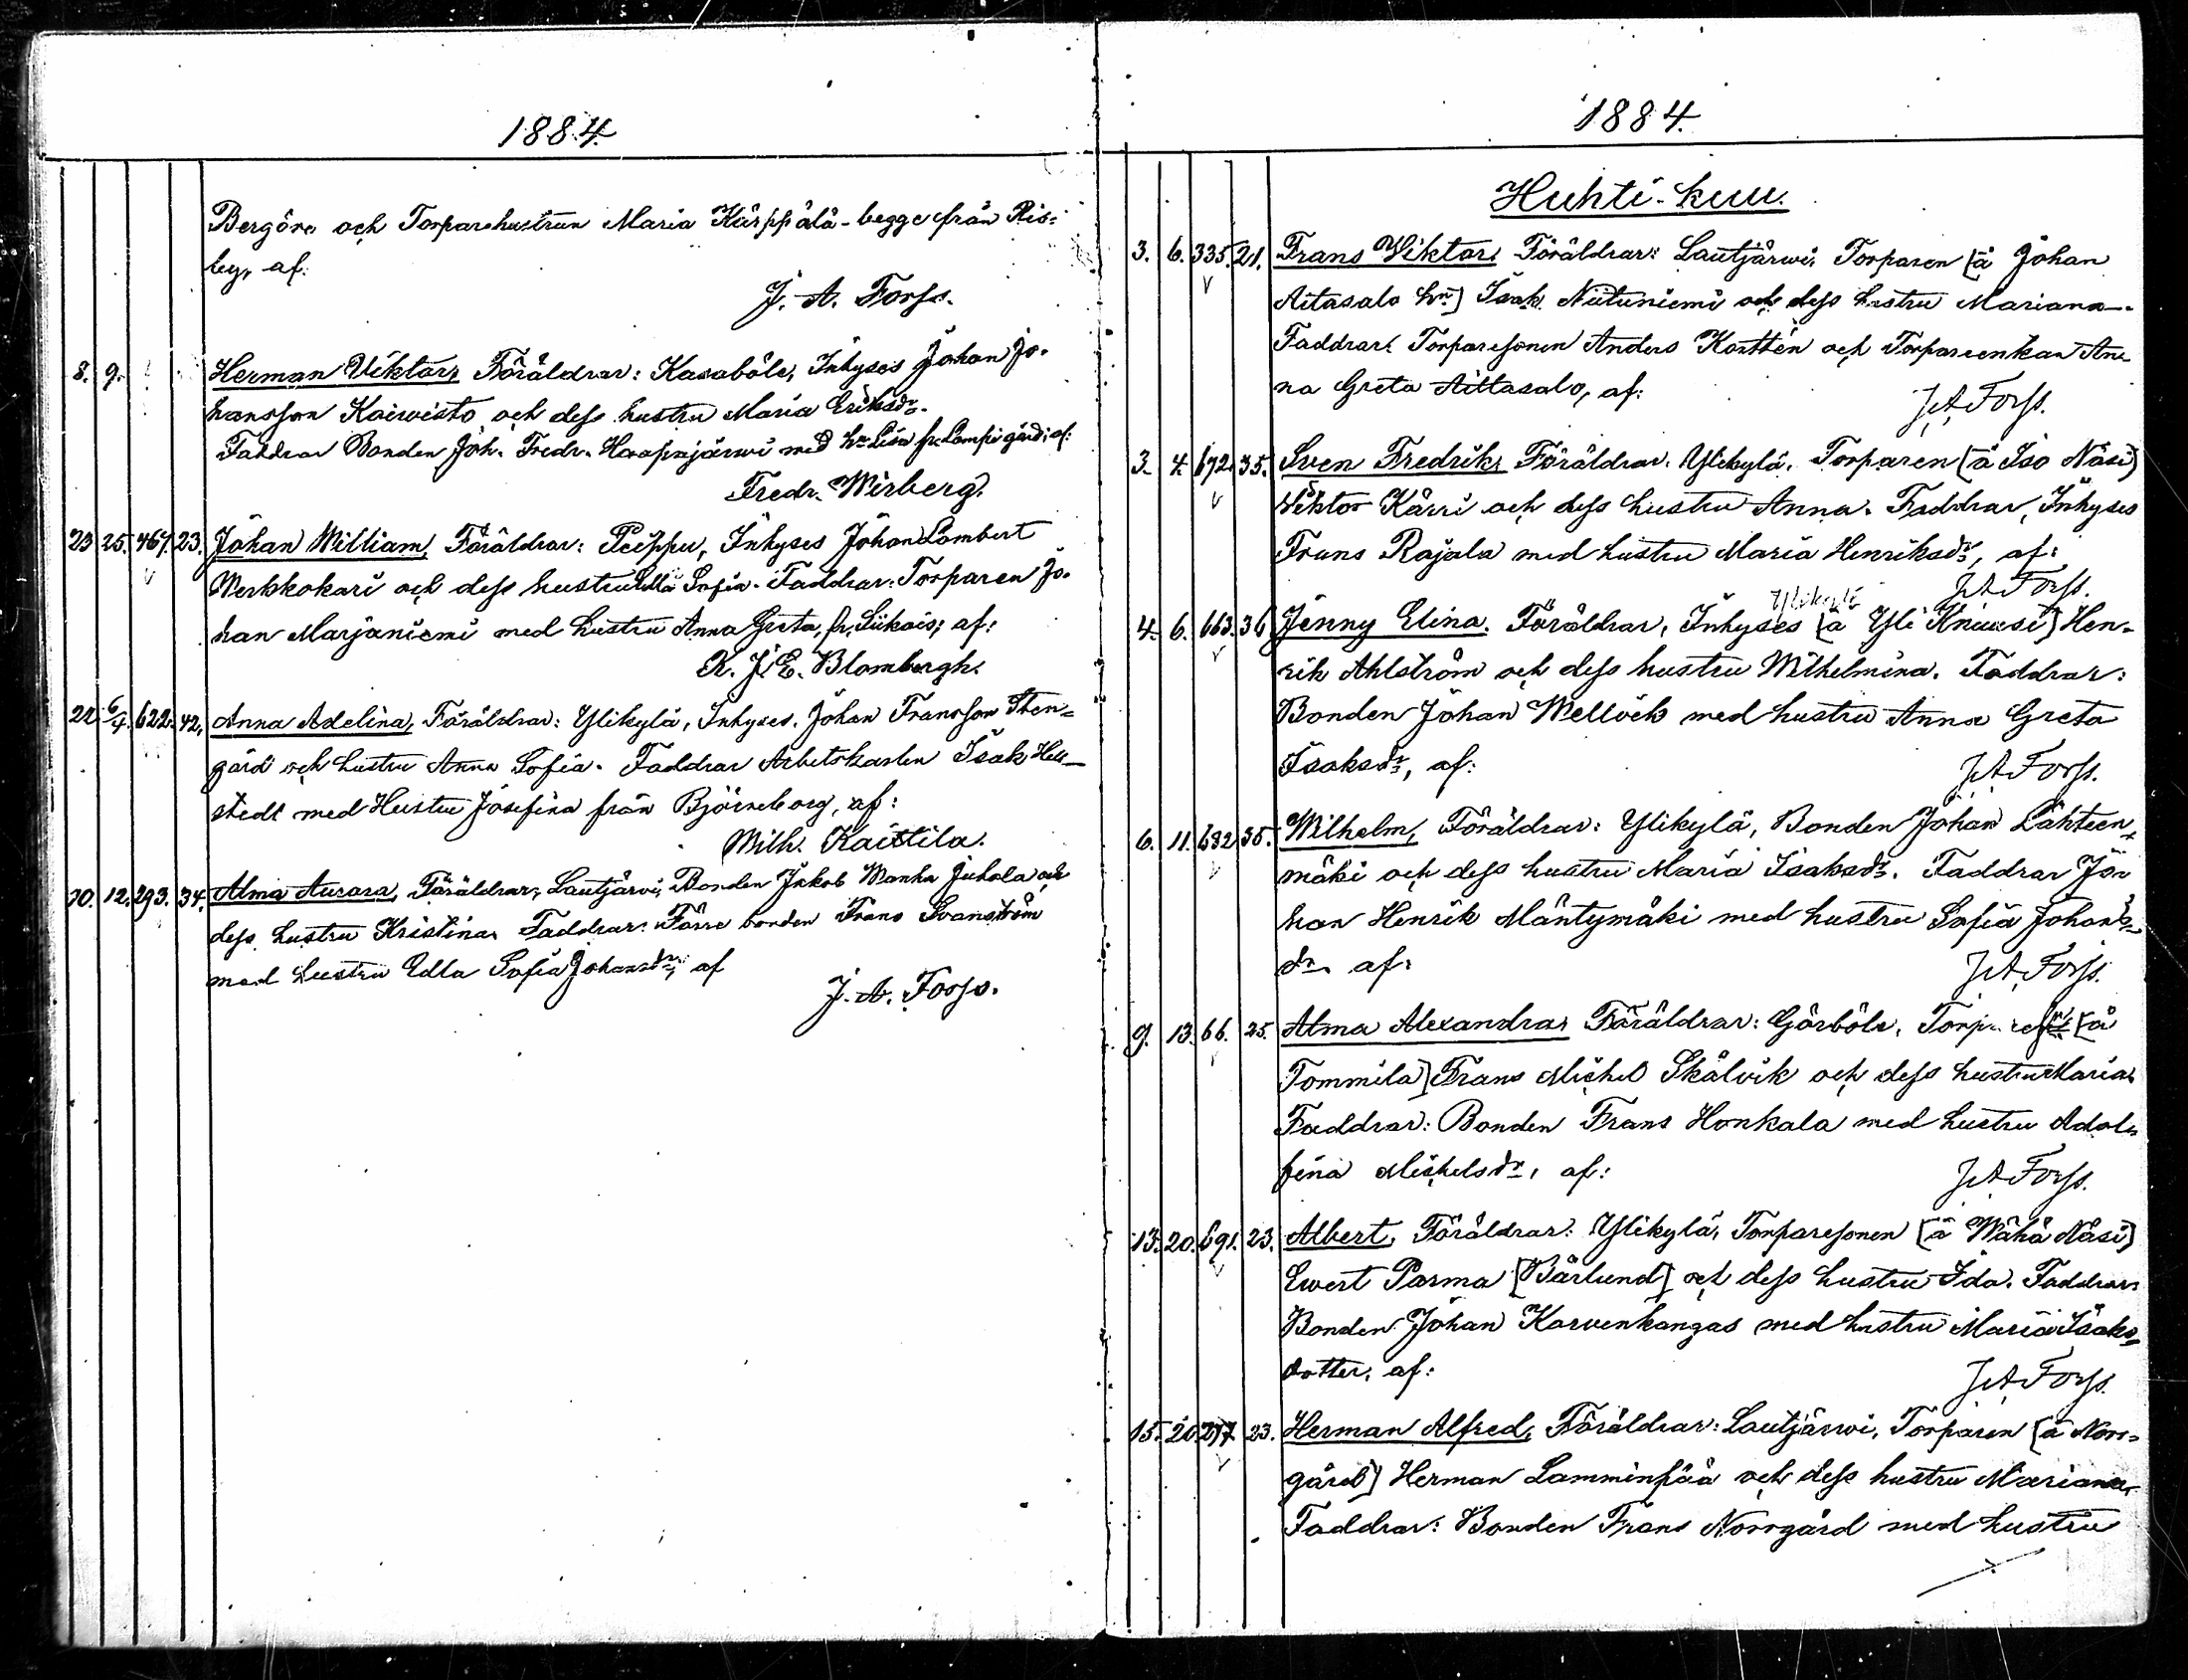 1884.
Bergöre och Torparehustrun Maria Kärppälä - begge från Ris-
by, af:
J. A. Forss.
8. 9. Herman Viktor, Föräldrar: Kasaböle, Inhyses Johan Jo-
hansson Koivisto och dess hustru Maria Eriksdr.
Faddrar Bonden Joh. Fredr. Haapajärwi med hu Lisa fr. Lampi gård; af:
Fredr. Wirberg.
23 25. 467. 23. Johan William, Föräldrar: Peippu, Inhyses Johan Lambert
Werkkokari och dess hustru Edla Sofia. Faddrar: Torparen Jo-
han Marjaniemi med hustru Anna Greta, fr. Siikais; af:
K. J. E. Blombergh.
22 6/4. 622. 42. Anna Adelina, Föräldrar: Ylikylä, Inhyses, Johan Fransson Sten-
gård och hustru Anna Sofia. Faddrar Arbetskarlen Isak Hell-
stedt med Hustru Josefina från Björneborg, af:
Wilh. Kaittila.
10. 12. 293. 34. Alma Aurora, Föräldrar, Lautjärvi, Bonden Jakob Wanha Juhola och
dess hustru Kristina. Faddrar: Förre bonden Frans Svanström
med hustru Edla Sofia Johansdr, af
J. A. Forss.
1884.
Huhti-kuu.
3. 6. 335. 21. Frans Viktor, Föräldrar: Lautjärwi, Torparen [å Johan
Aitasalo hn] Isak Niituniemi och dess hustru Mariana.
Faddrar: Torparesonen Anders Kortten och Torpareenkan An-
na Greta Aittasalo, af:
J A Forss.
3. 4. 672. 35. Sven Fredrik, Föräldrar. Ylikylä. Torparen [å Iso Näsi]
Viktor Kärri och dess hustru Anna. Faddrar, Inhyses
Frans Rajala med hustru Maria Henriksdr, af:
J A Forss.
Ylikylä
4. 6. 663. 36 Jenny Elina. Föräldrar, Inhyses [å Yli Knuusi] Hen-
rik Ahlström och dess hustru Wilhelmina. Faddrar:
Bonden Johan Wellvek med hustru Anna Greta
Isaksdr, af:
J A Forss.
6. 11. 682 35. Wilhelm, Föräldrar: Ylikylä, Bonden Johan Lähteen-
mäki och dess hustru Maria Isaksdr. Faddrar Jo-
han Henrik Mäntymäki med hustru Sofia Johans-
dr. af:
J A Forss.
9. 13. 66. 25. Alma Alexandra, Föräldrar: Görböle, [å
Tommila] Frans Michel Skålvik och dess hustru Maria.
Faddrar: Bonden Frans Honkala med hustru Adol-
fina Michelsdr, af:
J A Forss.
13. 20. 691. 23. Albert, Föräldrar: Ylikylä, Torparesonen [å Wähä Näsi]
Ewert Parma [Wärlund] och dess hustru Ida. Faddrar
Bonden Johan Karvenkangas med hustru Maria Isaks-
dotter, af:
J A Forss.
15. 20. 297 23. Herman Alfred, Föräldrar: Lautjärwi, Torparen [å Norr-
gård] Herman Lamminpää och dess hustru Mariana.
Faddrar: Bonden Frans Norrgård med hustru